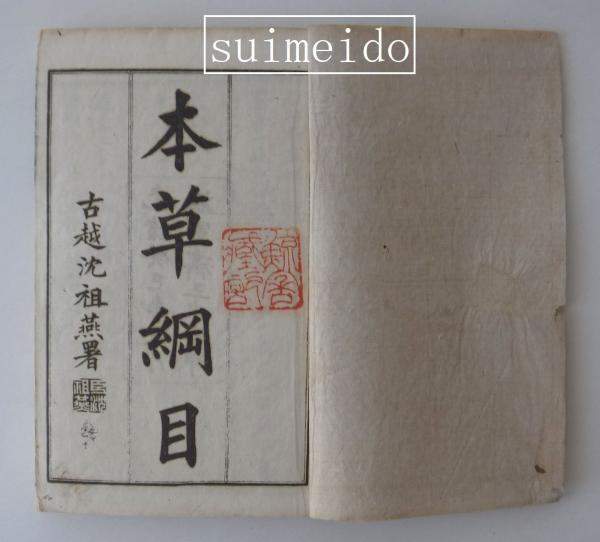 suimeido
本草綱目
古越沈祖燕署